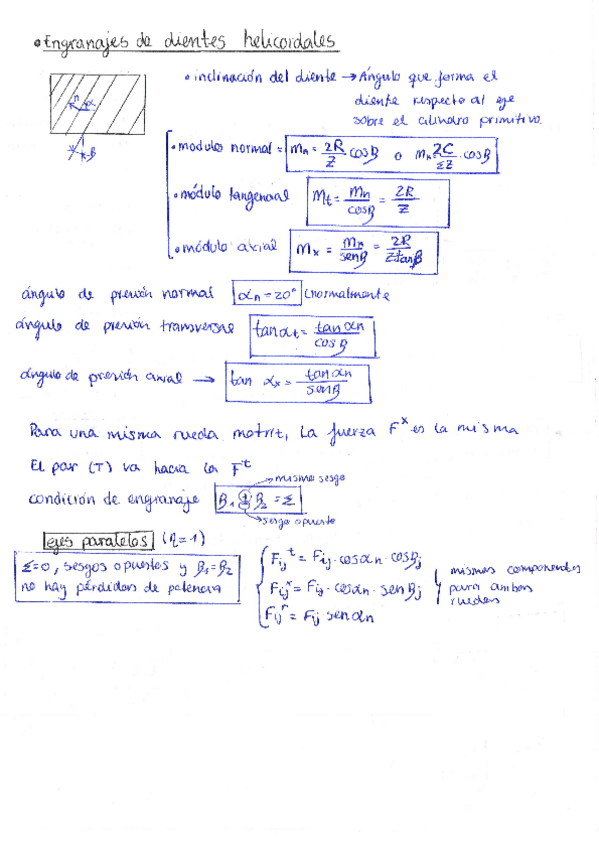 • Engranajes de dientes helicoidales
• inclinación del diente → Ángulo que forma el
diente respecto al eje
sobre el cilindro primitivo.
n α
β
• modulo normal = Mn = 2R/Z cosβ o Mn 2C/ΣZ · cosβ
• módulo tangencial Mt = Mn/cosβ = 2R/Z
• módulo axial Mx = Mn/senβ = 2R/Z tanβ
ángulo de presión normal αn = 20° (normalmente
ángulo de presión transversal tan αt = tan αn/cosβ
ángulo de presión axial → tan αx = tan αn/senβ
Para una misma rueda motriz, La fuerza F^x es la misma
El par (T) va hacia la F^t
→ mismo sesgo
condición de engranaje β1 ± β2 = Σ
→ sesgo opuesto
ejes paralelos (η = 1)
Σ=0, sesgos opuestos y β1 = β2
no hay pérdidas de potencia
Fij^t = Fij · cosαn · cosβj
Fij^x = Fij · cosαn · senβj
Fij^r = Fij senαn
mismas componentes
para ambas
ruedas